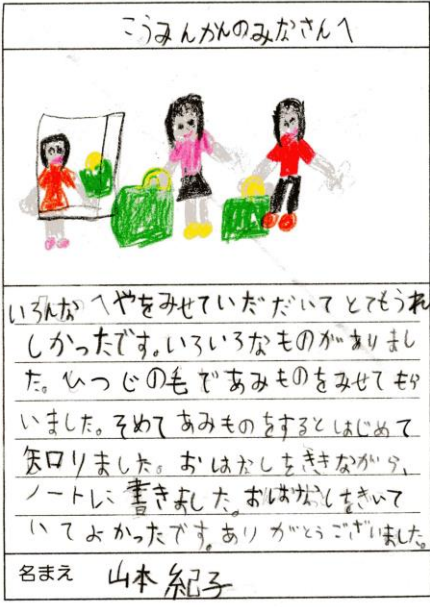 こうみんかんのみなさんへ
いろんなへやをみせていだだいてとてもうれ
しかったです。いろいろなものがありまし
た。ひつじの毛であみものをみせてもら
いました。そめてあみものをするとはじめて
知りました。おはなしをききながら、
ノートに書きました。おはなしをきいて
いてよかったです。ありがとうございました。
名まえ 山本 紀子